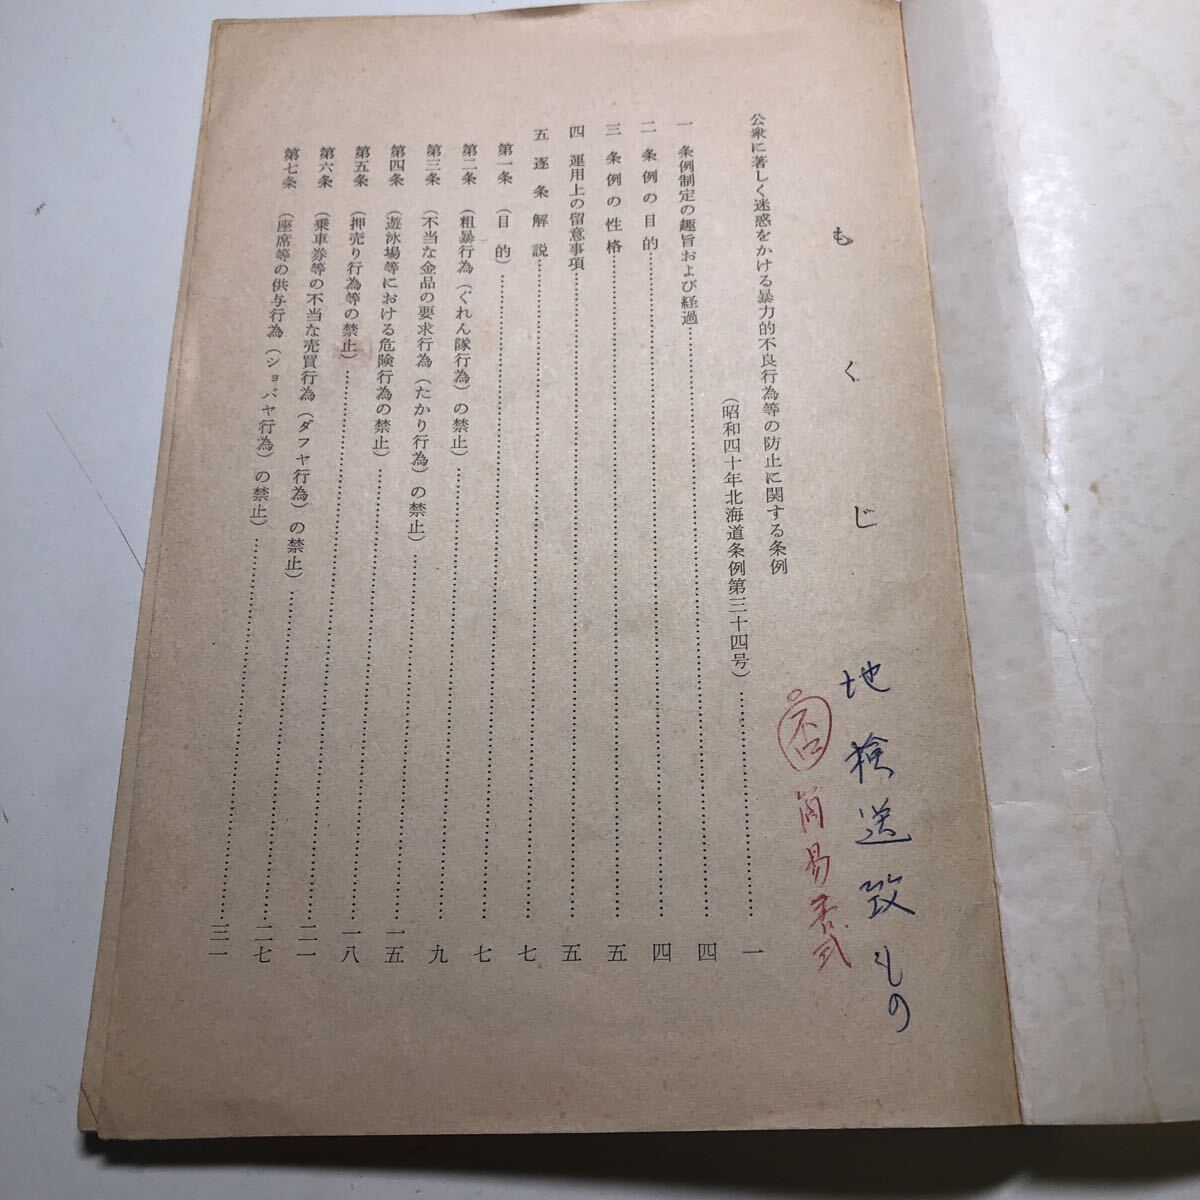 もくじ
公衆に著しく迷惑をかける暴力的不良行為等の防止に関する条例
(昭和四十年北海道条例第三十四号)……一
一 条例制定の趣旨および経過……四
二 条例の目的……四
三 条例の性格……五
四 運用上の留意事項……五
五 逐条解説……七
第一条 (目的)……七
第二条 (粗暴行為(ぐれん隊行為)の禁止)……九
第三条 (不当な金品の要求行為(たかり行為)の禁止)……一五
第四条 (遊泳場等における危険行為の禁止)……一八
第五条 (押売り行為等の禁止)……二一
第六条 (乗車券等の不当な売買行為(ダフヤ行為)の禁止)……二七
第七条 (座席等の供与行為(ショバヤ行為)の禁止)……三一
地検送致もの
否 簡易書式